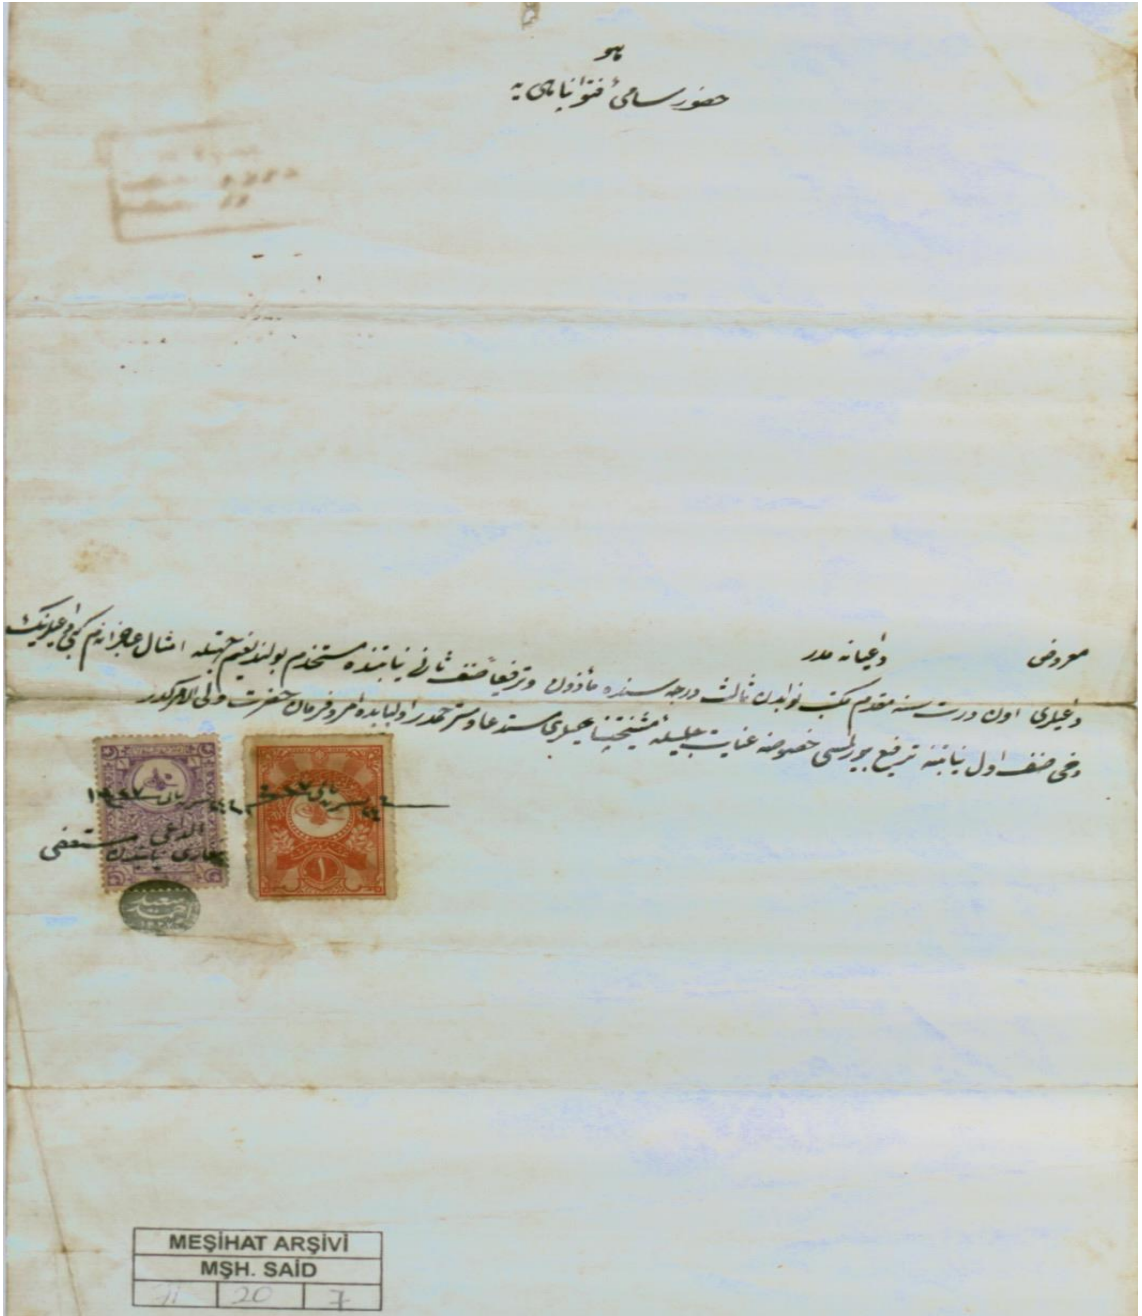 ياهو
حضور سامئ فتوا پناهى يه
معروض داعيانه مدر
داعيلرى اون درت سنه مقدم مكتب نوابدن ثالث درجه سنده مأذون وترفيعا صنف ثانى نيابتنده مستخدم بولنديغم جهتله امثال عاجزانه م كبى داعيلرينك
دخى صنف اول نيابتنه ترفيع بيورلمسى خصوصنه عنايت جليله مشيختپناهيلرى مستدعا ومسترحمدر اولبابده امر وفرمان حضرت ولى الامركدر
الداعى
نيابتندن مستعفى
١
MEŞİHAT ARŞİVİ
MŞH. SAİD
20 7